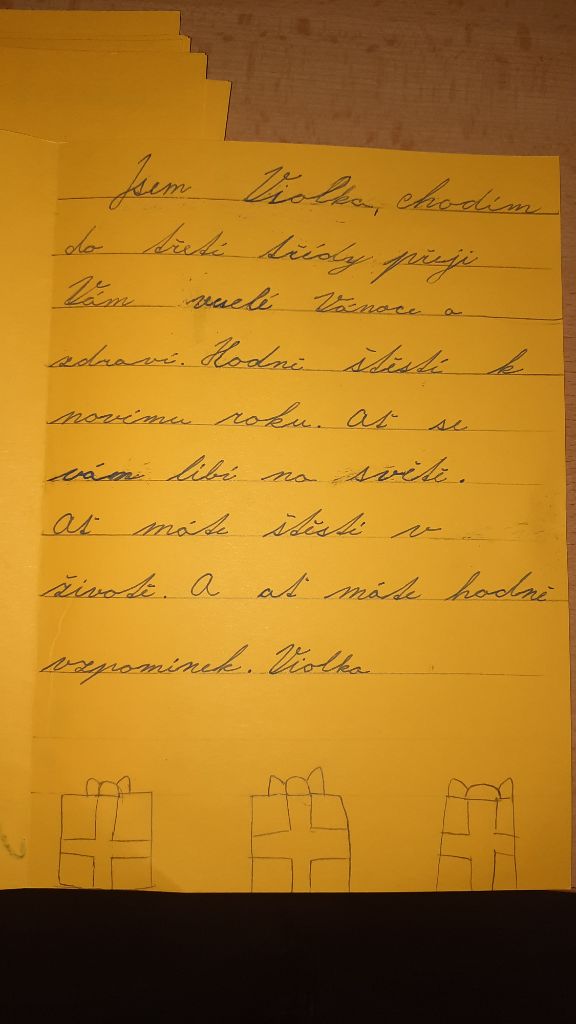 Jsem Violka, chodím
do třetí třídy přeji
Vám veselé Vánoce a
zdraví. Hodně štěstí k
novímu roku. Ať se
vám líbí na světě.
Ať máte štěstí v
životě. A ať máte hodně
vzpomínek. Violka